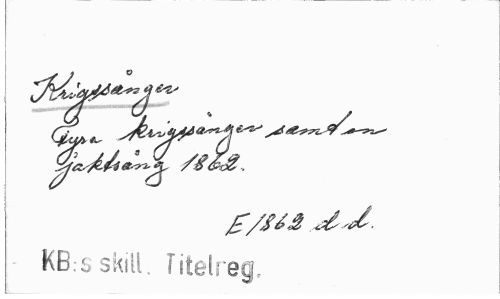 Krigssånger
Fyra krigssånger samt en
jaktsång 1862.
E 1862 d d.
KB:s skill. Titelreg.